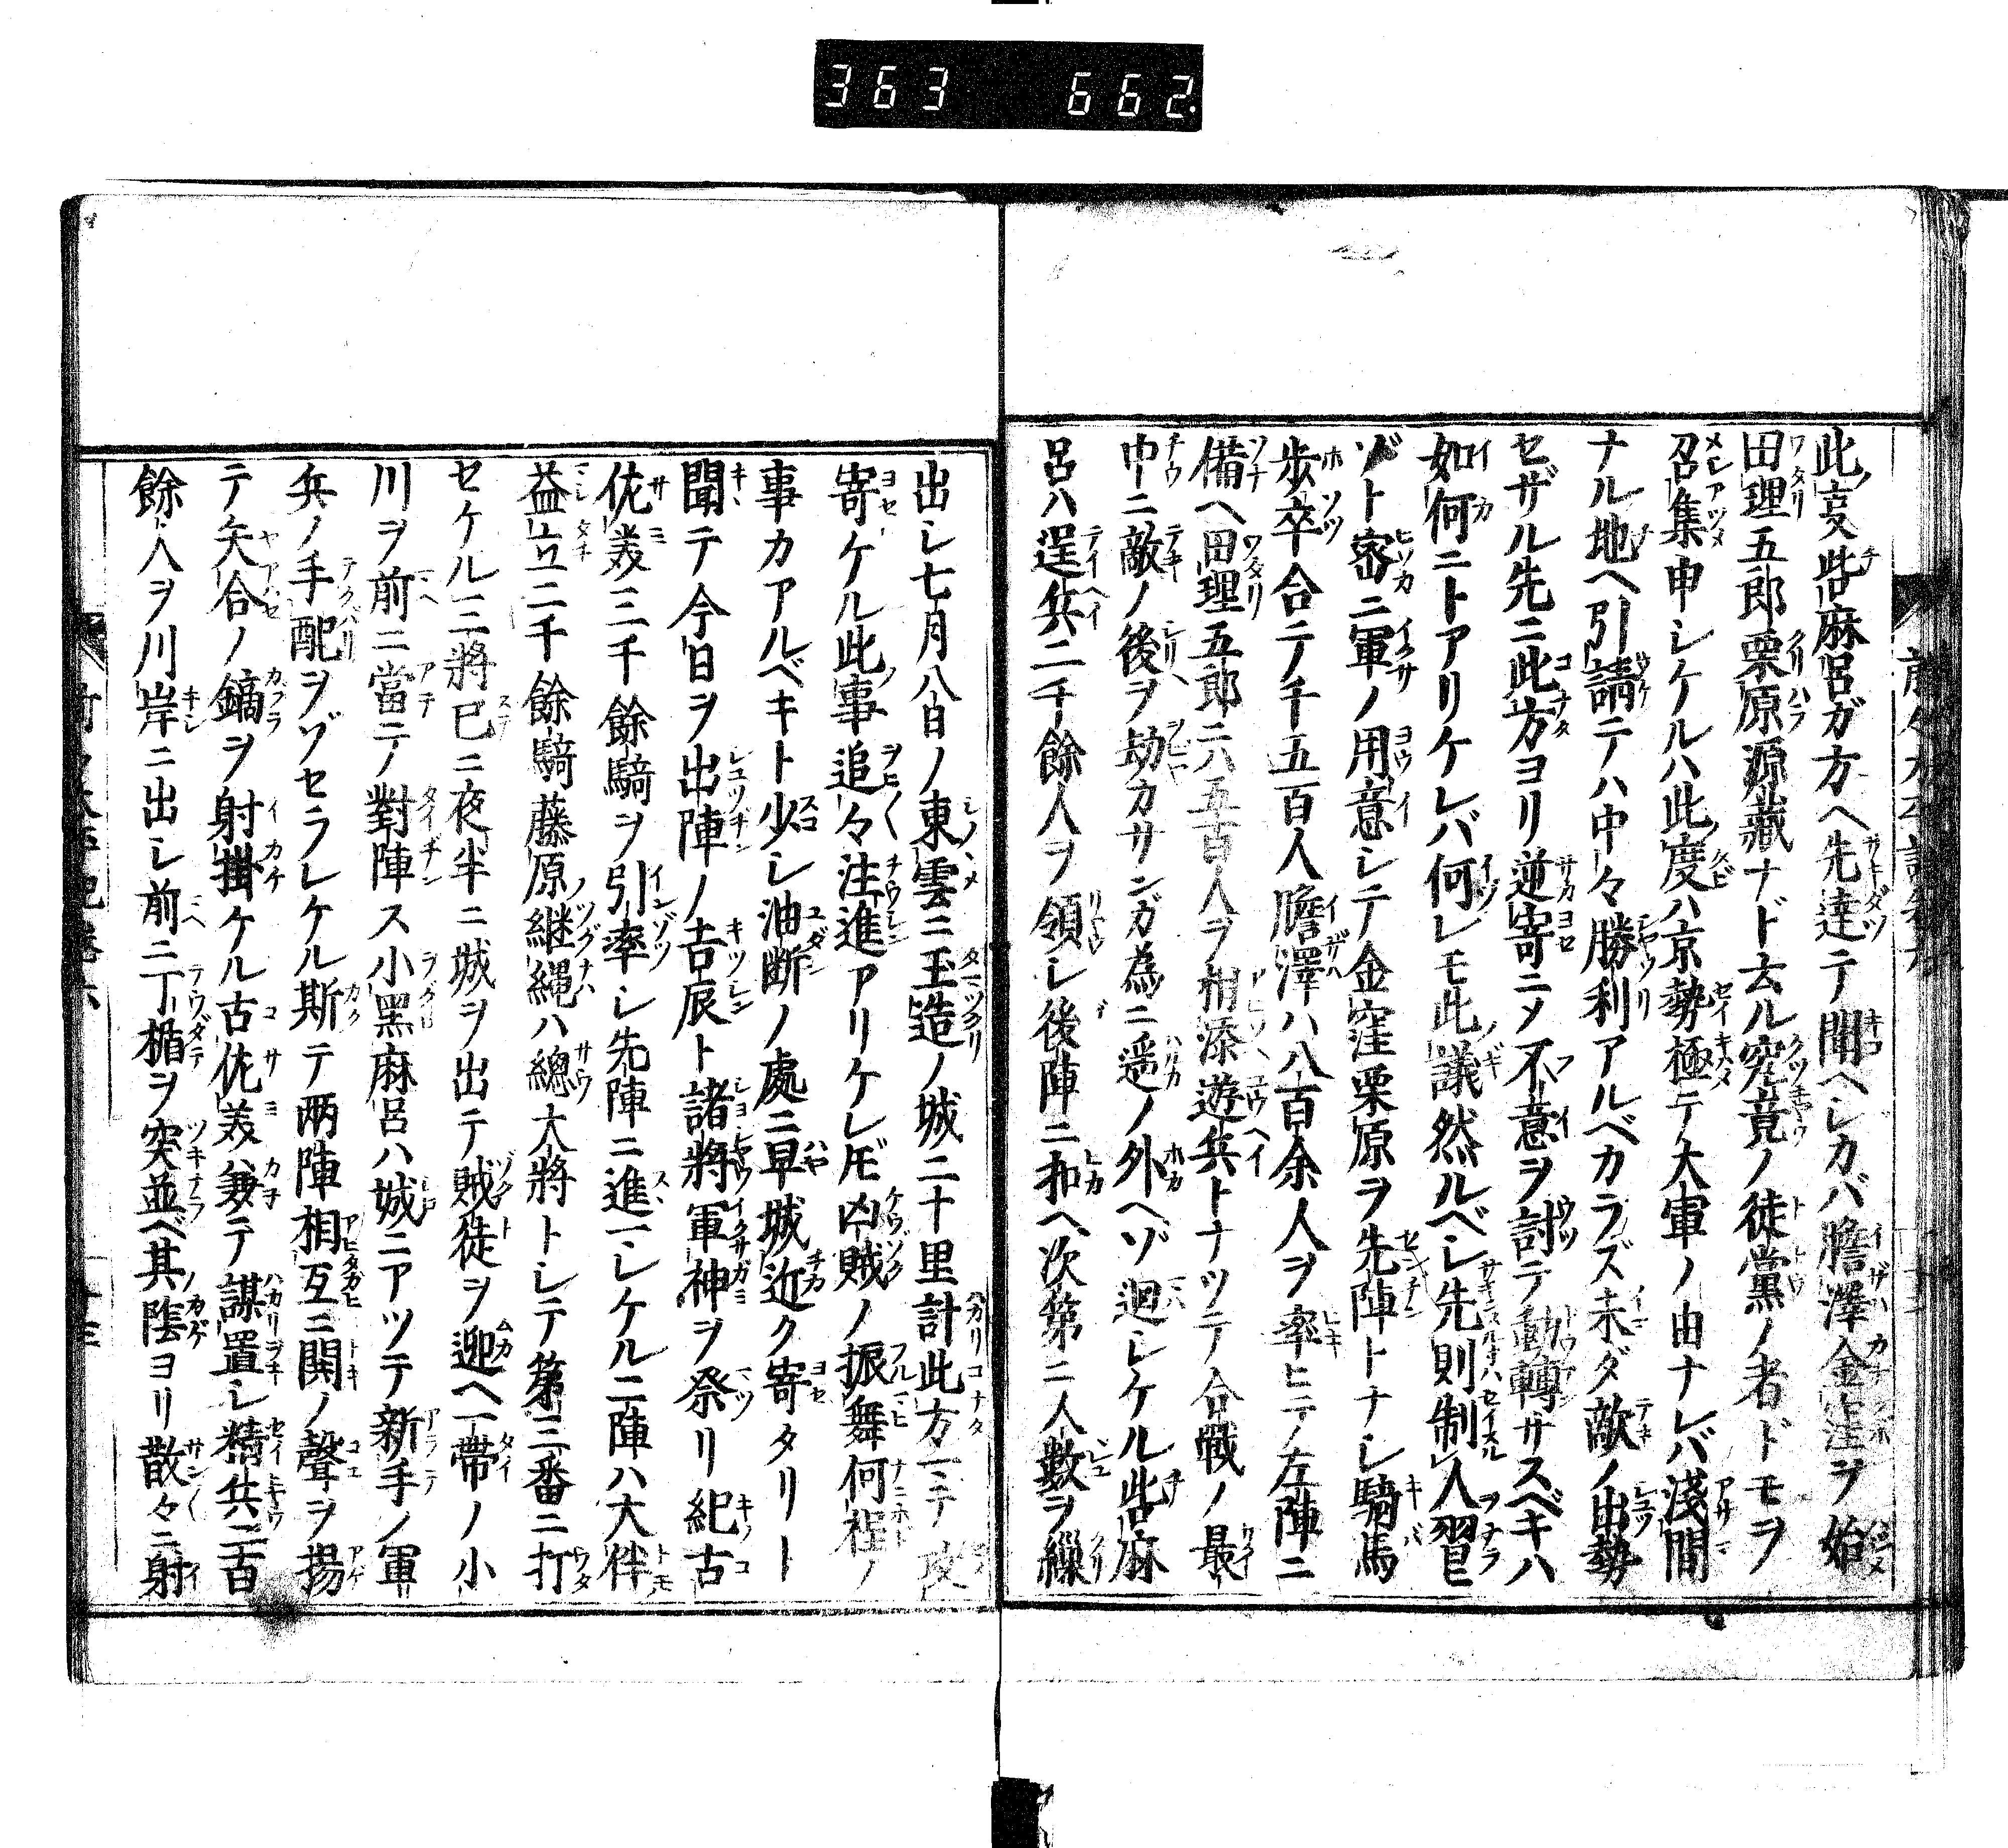 363 662
此ノ亥呰麻呂ガ方ヘ先達テ聞ヘシカバ膽澤金窪ヲ始
田理五郎栗原源藏ナド去ル究竟ノ徒黨ノ者ドモヲ
召集申シケルハ此度ハ京勢極テ大軍ノ由ナレバ淺間
ナル地ヘ引請テハ中々勝利アルベカラズ未ダ敵ノ出勢
セザル先ニ此方ヨリ逆寄ニメ不意ヲ討テ動轉サスベキハ
如何ニトアリケレバ何レモ此議然ルベシ先則制人習ヒ
ゾト密ニ軍ノ用意シテ金窪栗原ヲ先陣トナシ騎馬
歩卒合テ千五百人膽澤ハ八百余人ヲ率ヒテ左陣ニ
備ヘ田理五郎ニ六五百人ヲ相添遊兵トナツテ合戰ノ最
中ニ敵ノ後ヲ劫カサンガ為ニ遥ノ外ヘゾ廻シケル呰麻
呂ハ逞兵二千餘人ヲ領シ後陣ニ扣ヘ次第ニ人數ヲ繰
出シ七月八日ノ東雲ニ玉造ノ城二十里計此方マテ攻
寄ケル此事追々注進アリケレ𪜈凶賊ノ振舞何程ノ
事カアルベキト少シ油断ノ處ニ早城近ク寄タリト
聞テ今日ヲ出陣ノ吉辰ト諸將軍神ヲ祭リ紀古
佐美三千餘騎ヲ引率シ先陣ニ進マレケル二陣ハ大伴
益立二千餘騎藤原継縄ハ總大將トシテ第三番ニ打
セケル三將已ニ夜半ニ城ヲ出テ賊徒ヲ迎ヘ一帯ノ小
川ヲ前ニ當テ對陣ス小黑麻呂ハ城ニアツテ新手ノ軍
兵ノ手配ヲゾセラレケル斯テ两陣相互ニ鬨ノ聲ヲ揚
テ矢合ノ鏑ヲ射掛ケル古佐美ハ兼テ謀置シ精兵二百
餘人ヲ川岸ニ出シ前ニ丁楯ヲ突並ベ其陰ヨリ散々ニ射